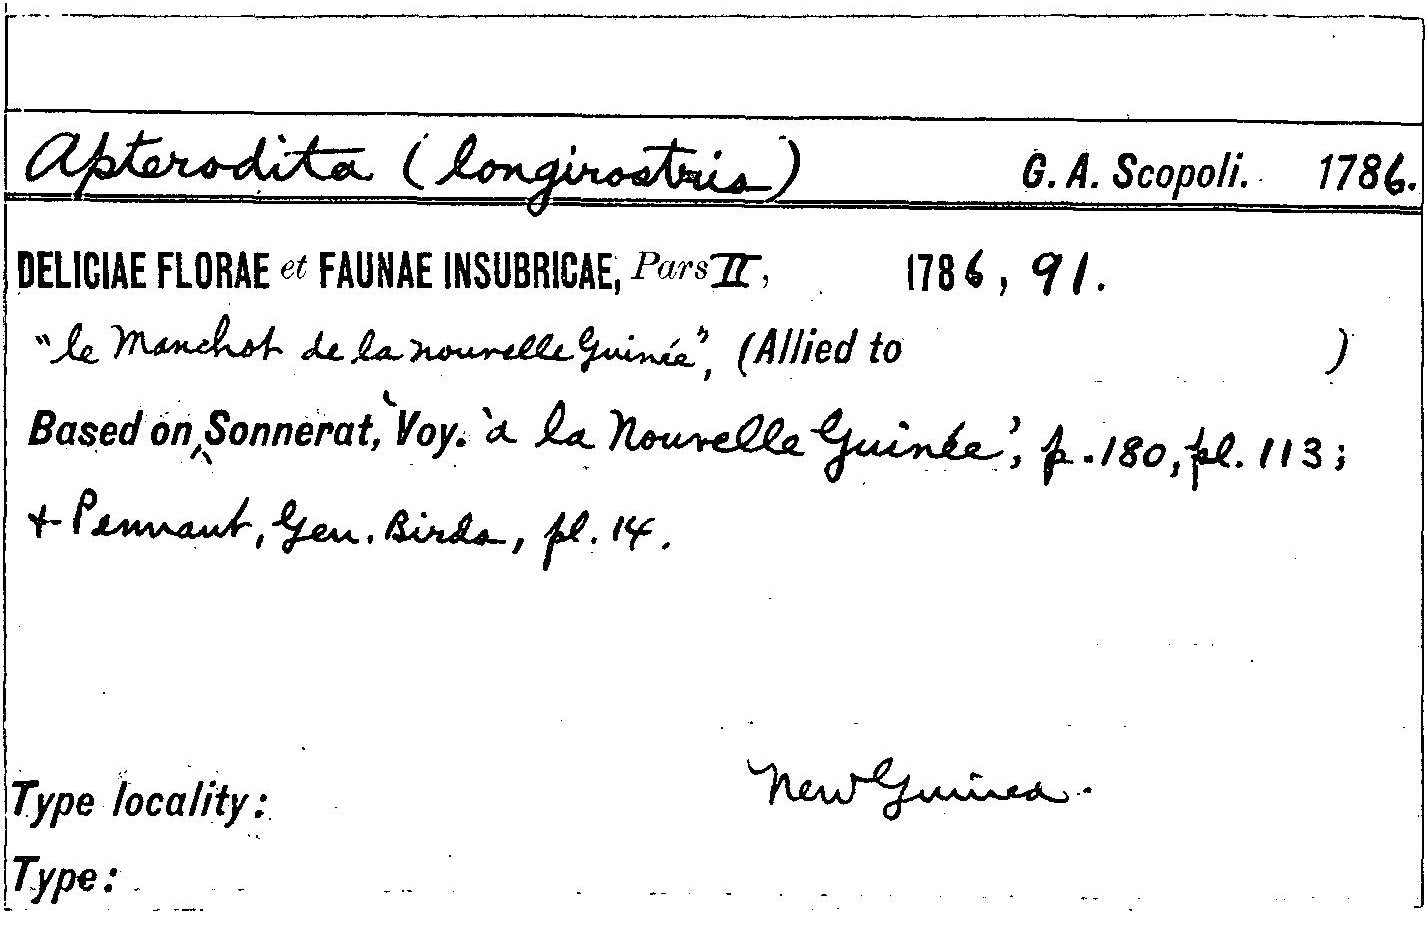 Apterodita (longirostris) G. A. Scopoli. 1786.
DELICIAE FLORAE et FAUNAE INSUBRICAE, Pars II, 1786, 91.
"le Manchot de la nouvelle Guinée", (Allied to )
Based on Sonnerat, 'Voy. à la Nouvelle Guinée', p. 180, pl. 113;
+ Pennant, Gen. Birds, pl. 14.
Type locality: New Guinea.
Type: